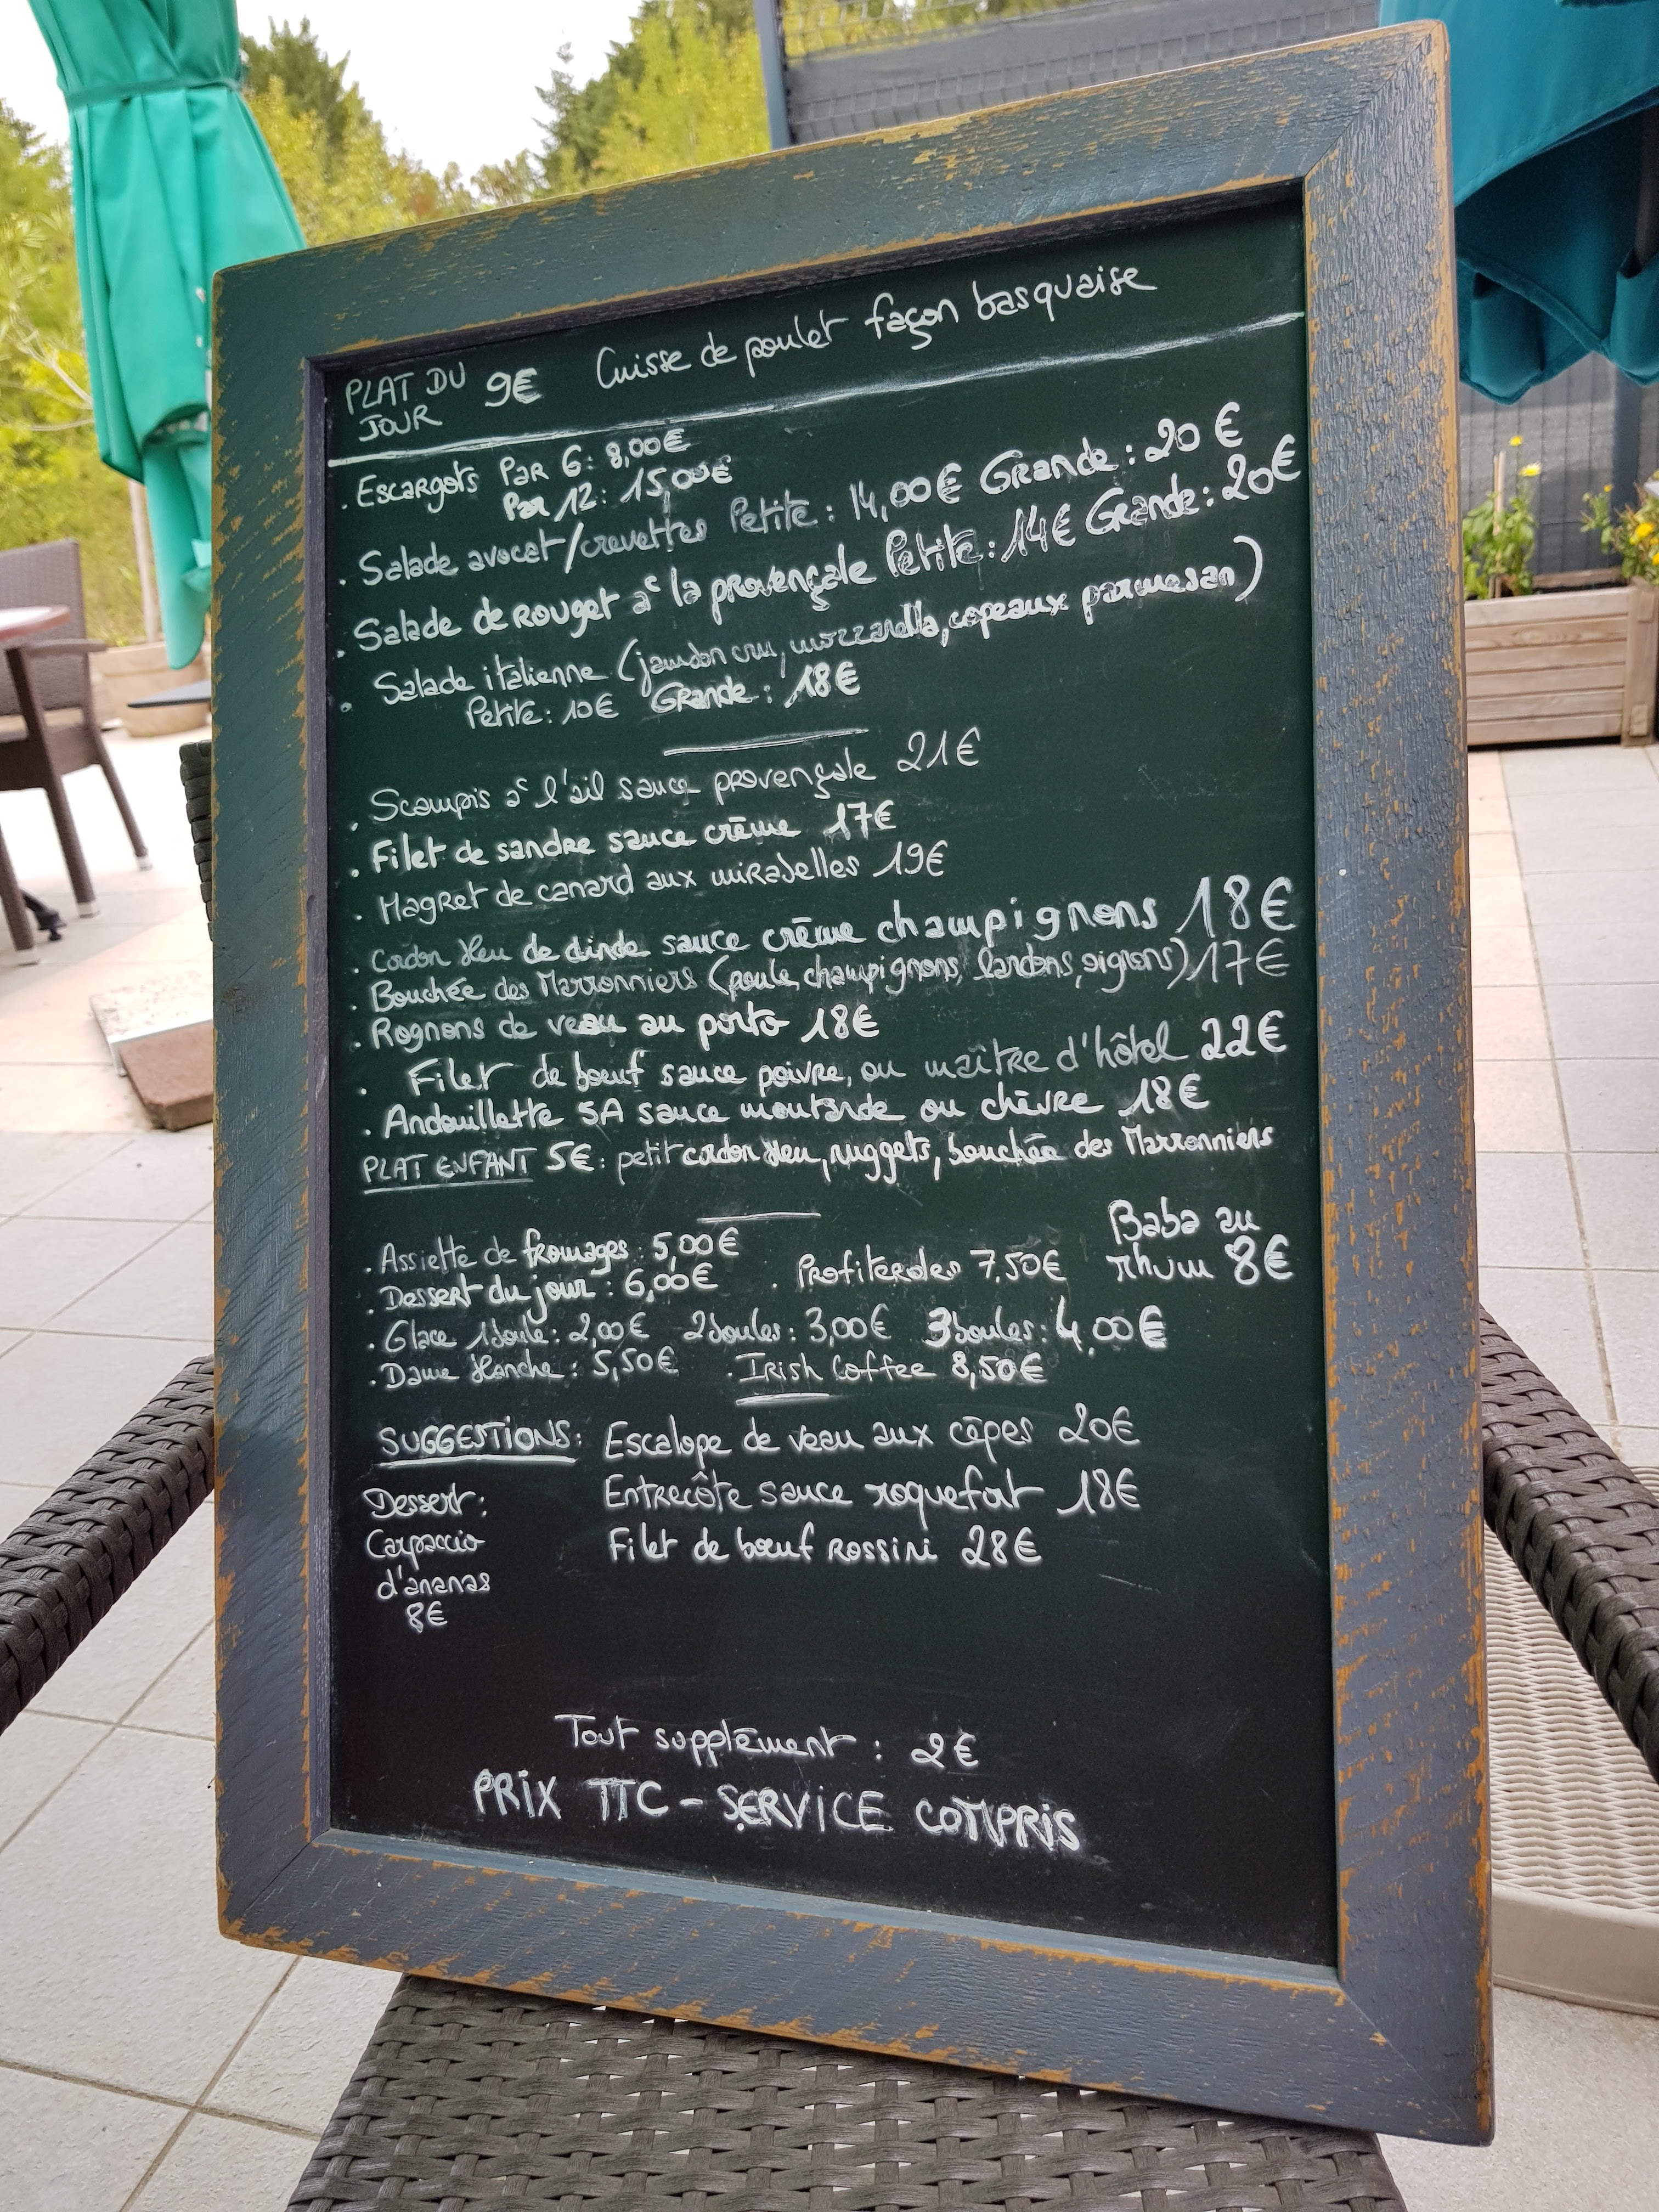 PLAT DU JOUR 9€ Cuisse de poulet façon basquaise
. Escargots Par 6: 8,00€
Par 12: 15,00€
. Salade avocat/crevettes Petite: 14,00€ Grande: 20€
. Salade de rouget à la provençale Petite: 14€ Grande: 20€
. Salade italienne (jambon cru, mozzarella, copeaux parmesan)
Petite: 10€ Grande: 18€
. Scampis à l'ail sauce provençale 21€
. Filet de sandre sauce crème 17€
. Magret de canard aux mirabelles 19€
. Cordon bleu de dinde sauce crème champignons 18€
. Bouchée des Marronniers (poule champignons, lardons, oignons) 17€
. Rognons de veau au porto 18€
. Filet de bœuf sauce poivre, ou maître d'hôtel 22€
. Andouillette 5A sauce moutarde ou chèvre 18€
PLAT ENFANT 5€: petit cordon bleu, nuggets, bouchée des Marronniers
. Assiette de fromages: 5,00€
. Dessert du jour: 6,00€ . Profiteroles 7.50€ Baba au rhum 8€
. Glace 1 boule: 2,00€ 2 boules: 3,00€ 3 boules: 4,00€
. Dame blanche: 5,50€ . Irish Coffee 8,50€
SUGGESTIONS: Escalope de veau aux cèpes 20€
Entrecôte sauce roquefort 18€
Filet de bœuf Rossini 28€
Dessert:
Carpaccio
d'ananas
8€
Tout supplément: 2€
PRIX TTC - SERVICE COMPRIS